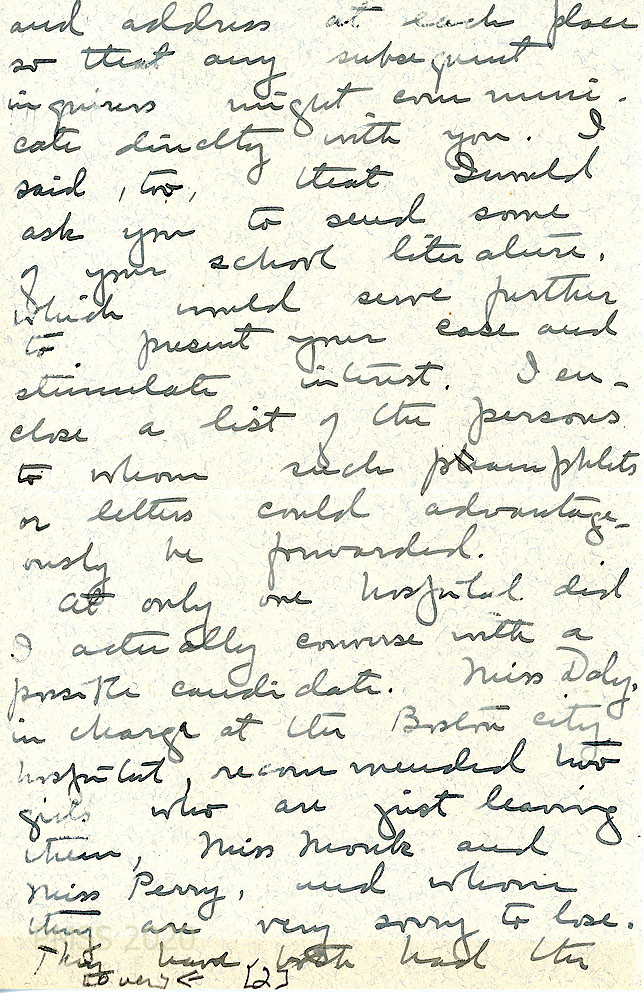 and address at each place
so that any subsequent
inquirers might communi-
cate directly with you. I
said, too, that I would
ask you to send some
of your school literature,
which would serve further
to present your case and
stimulate interest. I en-
close a list of the persons
to whom such pamphlets
or letters could advantage-
ously be forwarded.
At only one hospital did
I actually converse with a
possible candidate. Miss Daly,
in charge at the Boston city
hospital, recommended two
girls who are just leaving
them, Miss Monk and
Miss Perry, and whom
they are very sorry to lose.
They have both had the
[over] [2]
2020